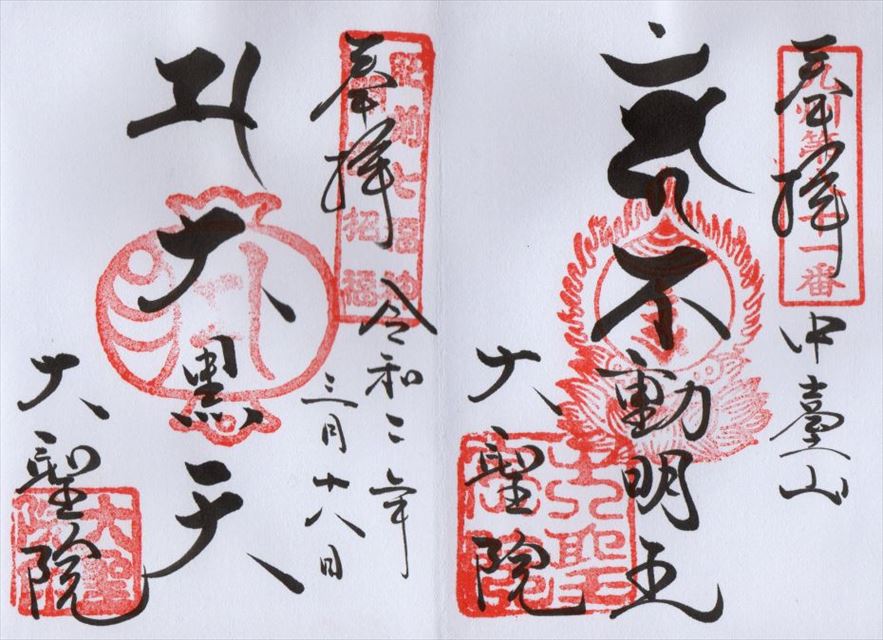 奉拝
九州第二十一番
中臺山
不動明王
大聖院
大聖院
奉拝
肥前七福神
招福
令和二年
三月十八日
大黒天
大聖院
大聖院